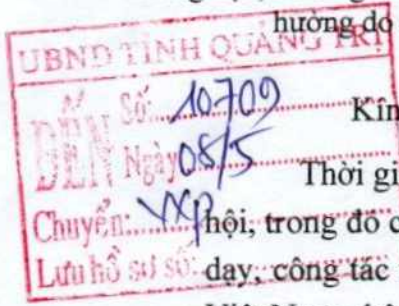 hường do
UBND TỈNH QUẢNG TRỊ
ĐẾN
Số: 10709
Ngày 08/5
Chuyển:
Lưu hồ sơ số:
Kín
Thời gi
hội, trong đó c
dạy, công tác